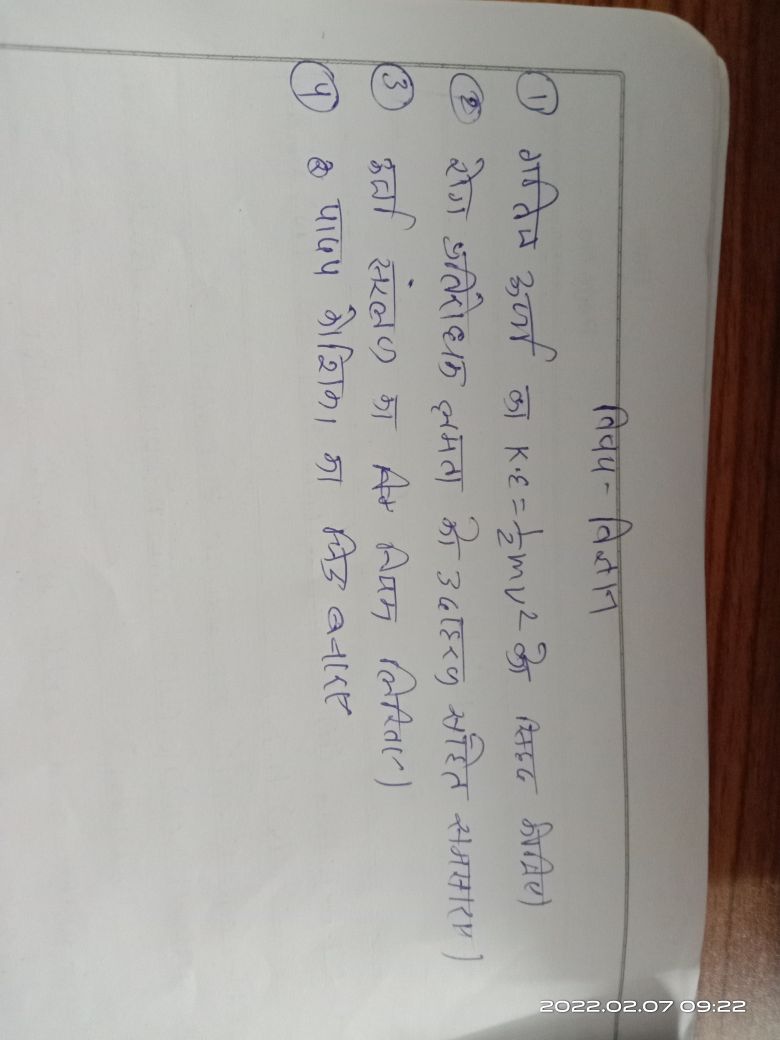 विषय - विज्ञान
① गतिज ऊर्जा का K.E = 1/2 mv² को सिद्ध कीजिए।
② रोग प्रतिरोधक क्षमता को उदाहरण सहित समझाइए।
③ ऊर्जा संरक्षण का नियम लिखिए।
④ पादप कोशिका का चित्र बनाइए
2022.02.07 09:22